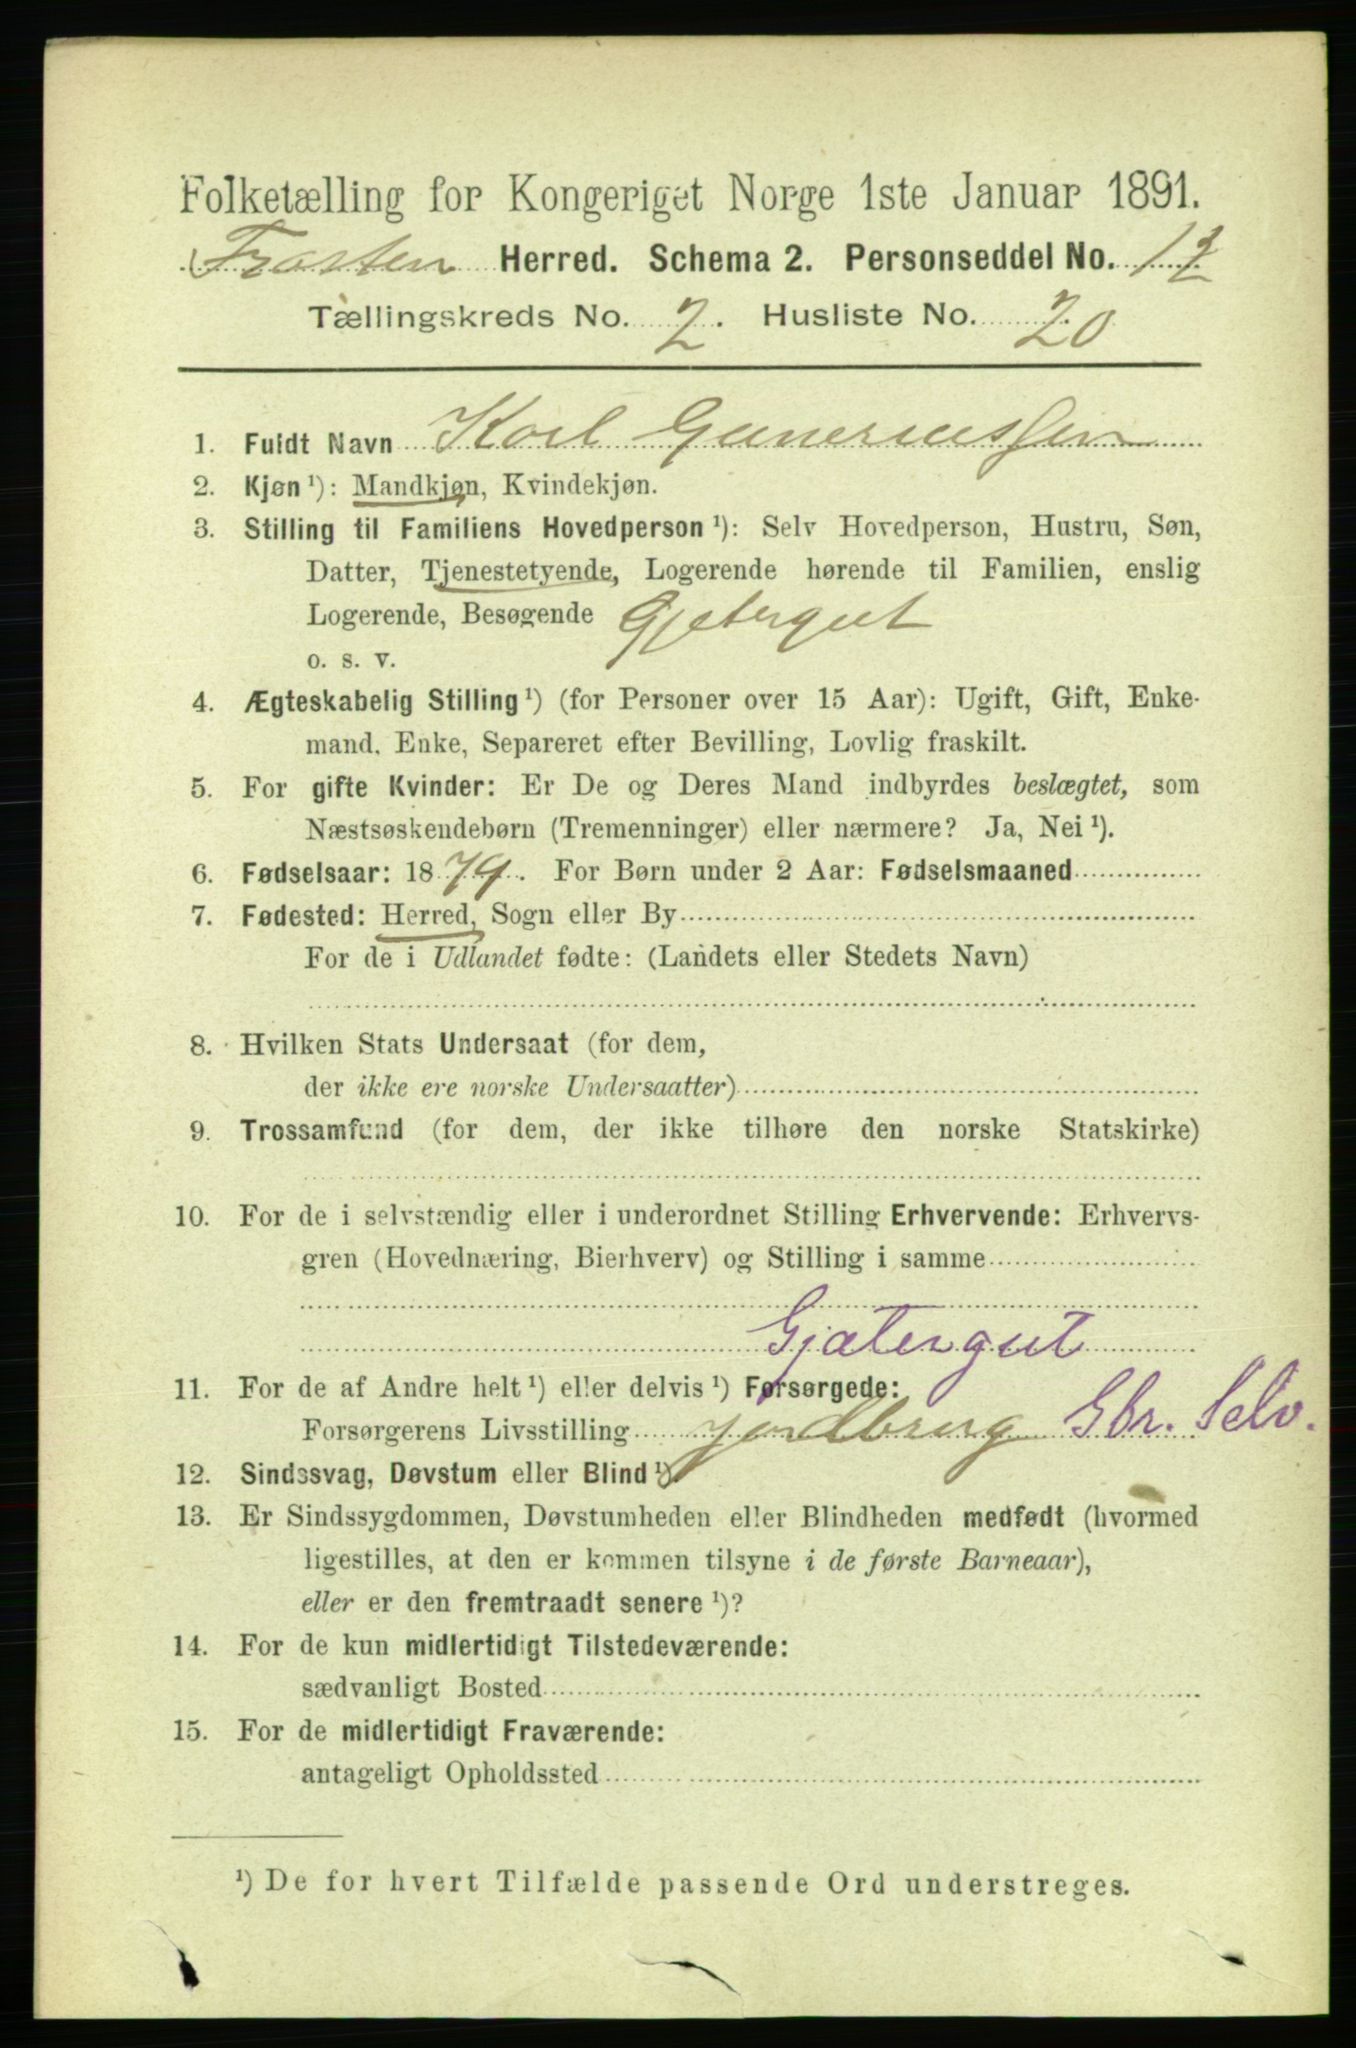 Folketælling for Kongeriget Norge 1ste Januar 1891.
Frosten Herred. Schema 2. Personseddel No. 12
Tællingskreds No. 2. Husliste No. 20
1. Fuldt Navn Karl Guneriussen
2. Kjøn ¹): Mandkjøn, Kvindekjøn.
3. Stilling til Familiens Hovedperson ¹): Selv Hovedperson, Hustru, Søn,
Datter, Tjenestetyende, Logerende hørende til Familien, enslig
Logerende, Besøgende Gjetergut
o. s. v.
4. Ægteskabelig Stilling ¹) (for Personer over 15 Aar): Ugift, Gift, Enke-
mand, Enke, Separeret efter Bevilling, Lovlig fraskilt.
5. For gifte Kvinder: Er De og Deres Mand indbyrdes beslægtet, som
Næstsøskendebørn (Tremenninger) eller nærmere? Ja, Nei ¹).
6. Fødselsaar: 1879. For Børn under 2 Aar: Fødselsmaaned
7. Fødested: Herred, Sogn eller By
For de i Udlandet fødte: (Landets eller Stedets Navn)
8. Hvilken Stats Undersaat (for dem,
der ikke ere norske Undersaatter)
9. Trossamfund (for dem, der ikke tilhøre den norske Statskirke)
10. For de i selvstændig eller i underordnet Stilling Erhvervende: Erhvervs-
gren (Hovednæring, Bierhverv) og Stilling i samme
Gjætergut
11. For de af Andre helt ¹) eller delvis ¹) Forsørgede:
Forsørgerens Livsstilling jordbrug Gbr. Selv.
12. Sindssvag, Døvstum eller Blind ¹).
13. Er Sindssygdommen, Døvstumheden eller Blindheden medfødt (hvormed
ligestilles, at den er kommen tilsyne i de første Barneaar),
eller er den fremtraadt senere ¹)?
14. For de kun midlertidigt Tilstedeværende:
sædvanligt Bosted
15. For de midlertidigt Fraværende:
antageligt Opholdssted
¹) De for hvert Tilfælde passende Ord understreges.